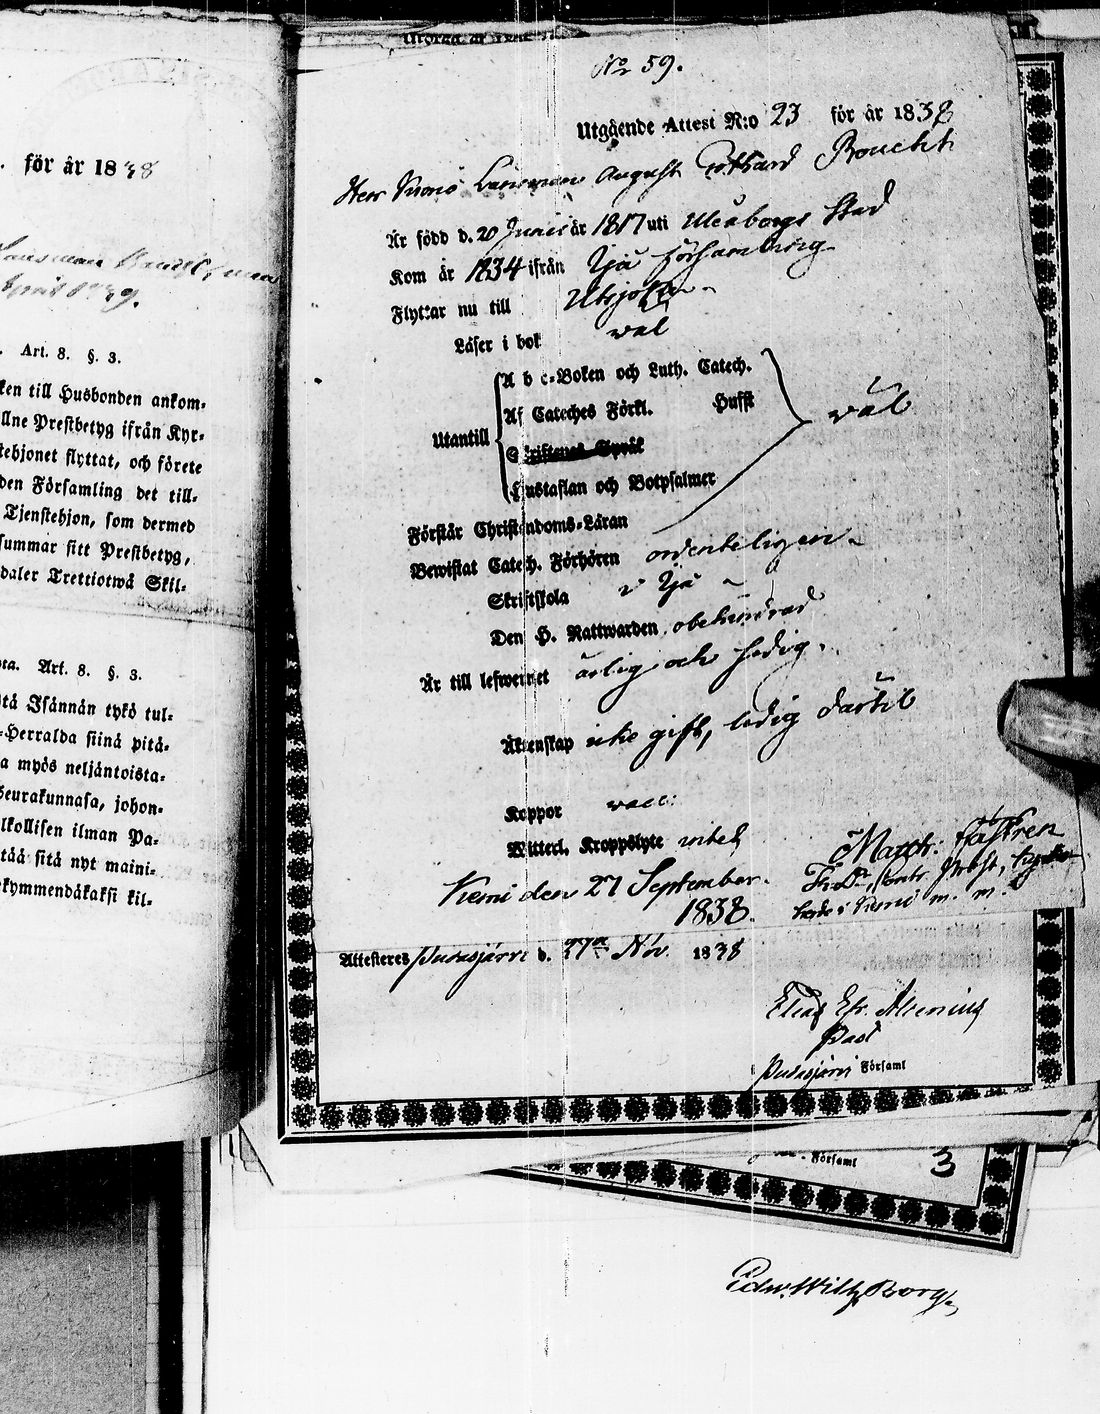 för år 1838
April 1839.
Art. 8. §. 3.
ken till Husbonden ankom-
llne Prestbetyg ifrån Kyr-
tehjonet flyttat, och förete
den Församling det till-
Tjenstehjon, som dermed
summar sitt Prestbetyg,
daler Trettiotwå Skil-
ta. Art. 8. §. 3.
tå Isännän tykö tul-
-Herralda siinä pitä-
a myös neljäntoista-
Seurakunnasa, johon-
lkollisen ilman Pa-
tää sitä nyt maini-
ekymmendäkaksi kil-
No 59.
Utgående Attest N:o 23 för år 1838
Herr Krono Länsman August Gothard Boucht
Är född d. 20 Junii år 1817 uti Uleåborgs Stad
Kom år 1834 ifrån Ijå församling
Flyttar nu till Utsjoki
Läser i bok wäl
Utantill
A b c-Boken och Luth. Catech.
Af Cateches Förkl. Hufft
Skriftenes Språk
Hustaflan och Botpsalmer
wäl
Förstår Christendoms-Läran
Bewistat Catech. Förhören ordenteligen
Skriftskola i Ijå
Den H. Nattwarden obehindrad
Är till lefwernet ärlig och fredig.
Äktenskap icke gift, ledig dertil
Koppor vacc:
Witterl. Kroppslyte intet
Kemi den 27 September
1838.
Matth: Castren
Prost, Kyrko-
herde i Kemi m. m.
Attesteras Pudasjärvi d. 27de Nov. 1838
Elias Efr. Alcenius
Past
Pudasjärvi Församl
Församl
3
Edw. Wilh. Borg